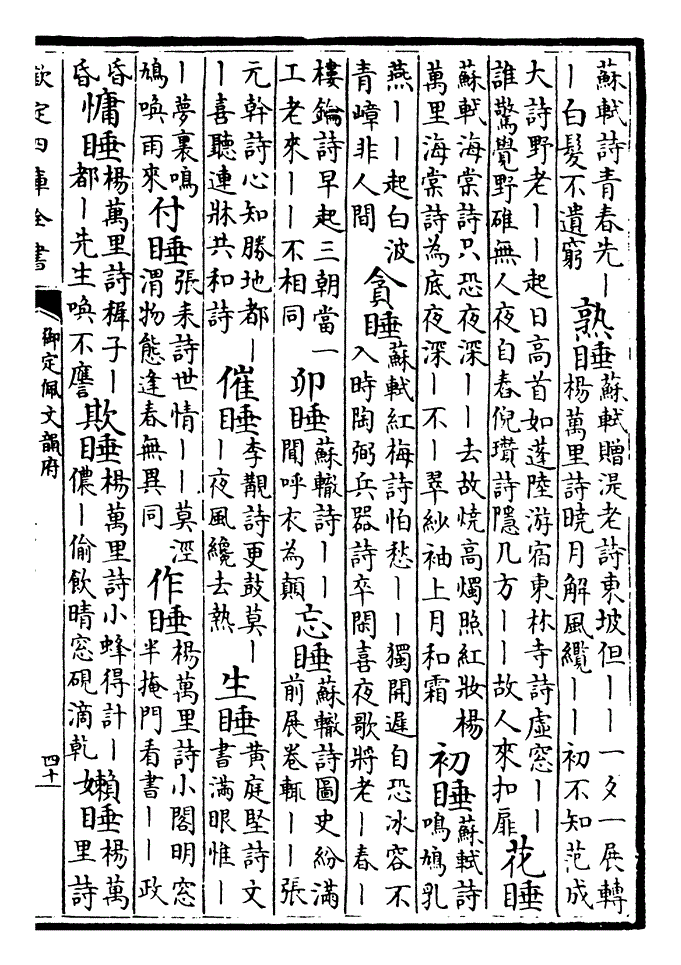 蘇軾詩青春先｜
｜白髮不遺窮
熟睡
蘇軾贈湜老詩東坡但｜｜一夕一展轉
楊萬里詩曉月解風纜｜｜初不知范成
大詩野老｜｜起日高首如蓬陸游宿東林寺詩虛窓｜｜
誰驚覺野碓無人夜自舂倪瓚詩隱几方｜｜故人來扣扉
花睡
蘇軾海棠詩只恐夜深｜｜去故燒高燭照紅妝楊
萬里海棠詩為底夜深｜不｜翠紗袖上月和霜
初睡
蘇軾詩
鳴鳩乳
燕｜｜起白波
青嶂非人間
貪睡
蘇軾紅梅詩怕愁｜｜獨開遲自恐冰容不
入時陶弼兵器詩卒閑喜夜歌將老｜春｜
樓鑰詩早起三朝當一
工老來｜｜不相同
卯睡
蘇轍詩｜｜
閒呼衣為顛
忘睡
蘇轍詩圖史紛滿
前展卷輒｜｜張
元幹詩心知勝地都｜
｜喜聽連牀共和詩
催睡
李覯詩更鼓莫｜
｜夜風纔去熱
生睡
黃庭堅詩文
書滿眼惟｜
｜夢裏鳴
鳩喚雨來
付睡
張耒詩世情｜｜莫涇
渭物態逢春無異同
作睡
楊萬里詩小閣明窓
半掩門看書｜｜政
昏
昏
慵睡
楊萬里詩樨子｜
都｜先生喚不譍
欺睡
楊萬里詩小蜂得計｜
儂｜偷飲晴窓硯滴乾
嬾睡
楊萬
里詩
欽定四庫全書
御定佩文韻府
四十